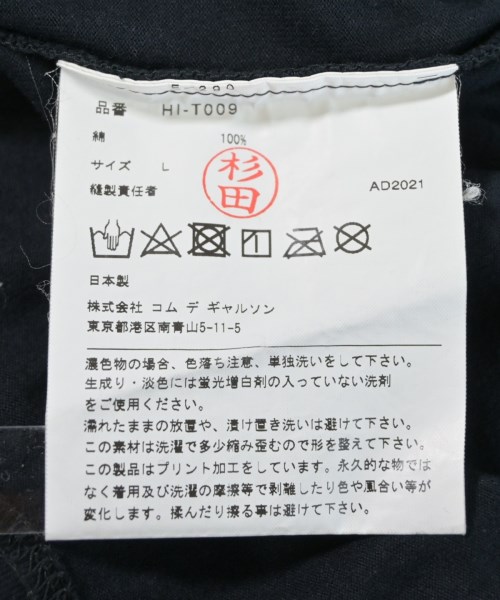 品番 HI-T009
綿 100%
サイズ L
縫製責任者
杉田
AD2021
日本製
株式会社 コム デ ギャルソン
東京都港区南青山5-11-5
濃色物の場合、色落ち注意、単独洗いをして下さい。
生成り・淡色には蛍光増白剤の入っていない洗剤
をご使用ください。
濡れたままの放置や、漬け置き洗いは避けて下さい。
この素材は洗濯で多少縮み歪むので形を整えて下さい。
この製品はプリント加工をしています。永久的な物では
なく着用及び洗濯の摩擦等で剥離したり色や風合い等が
変化します。揉んだり擦る事は避けて下さい。